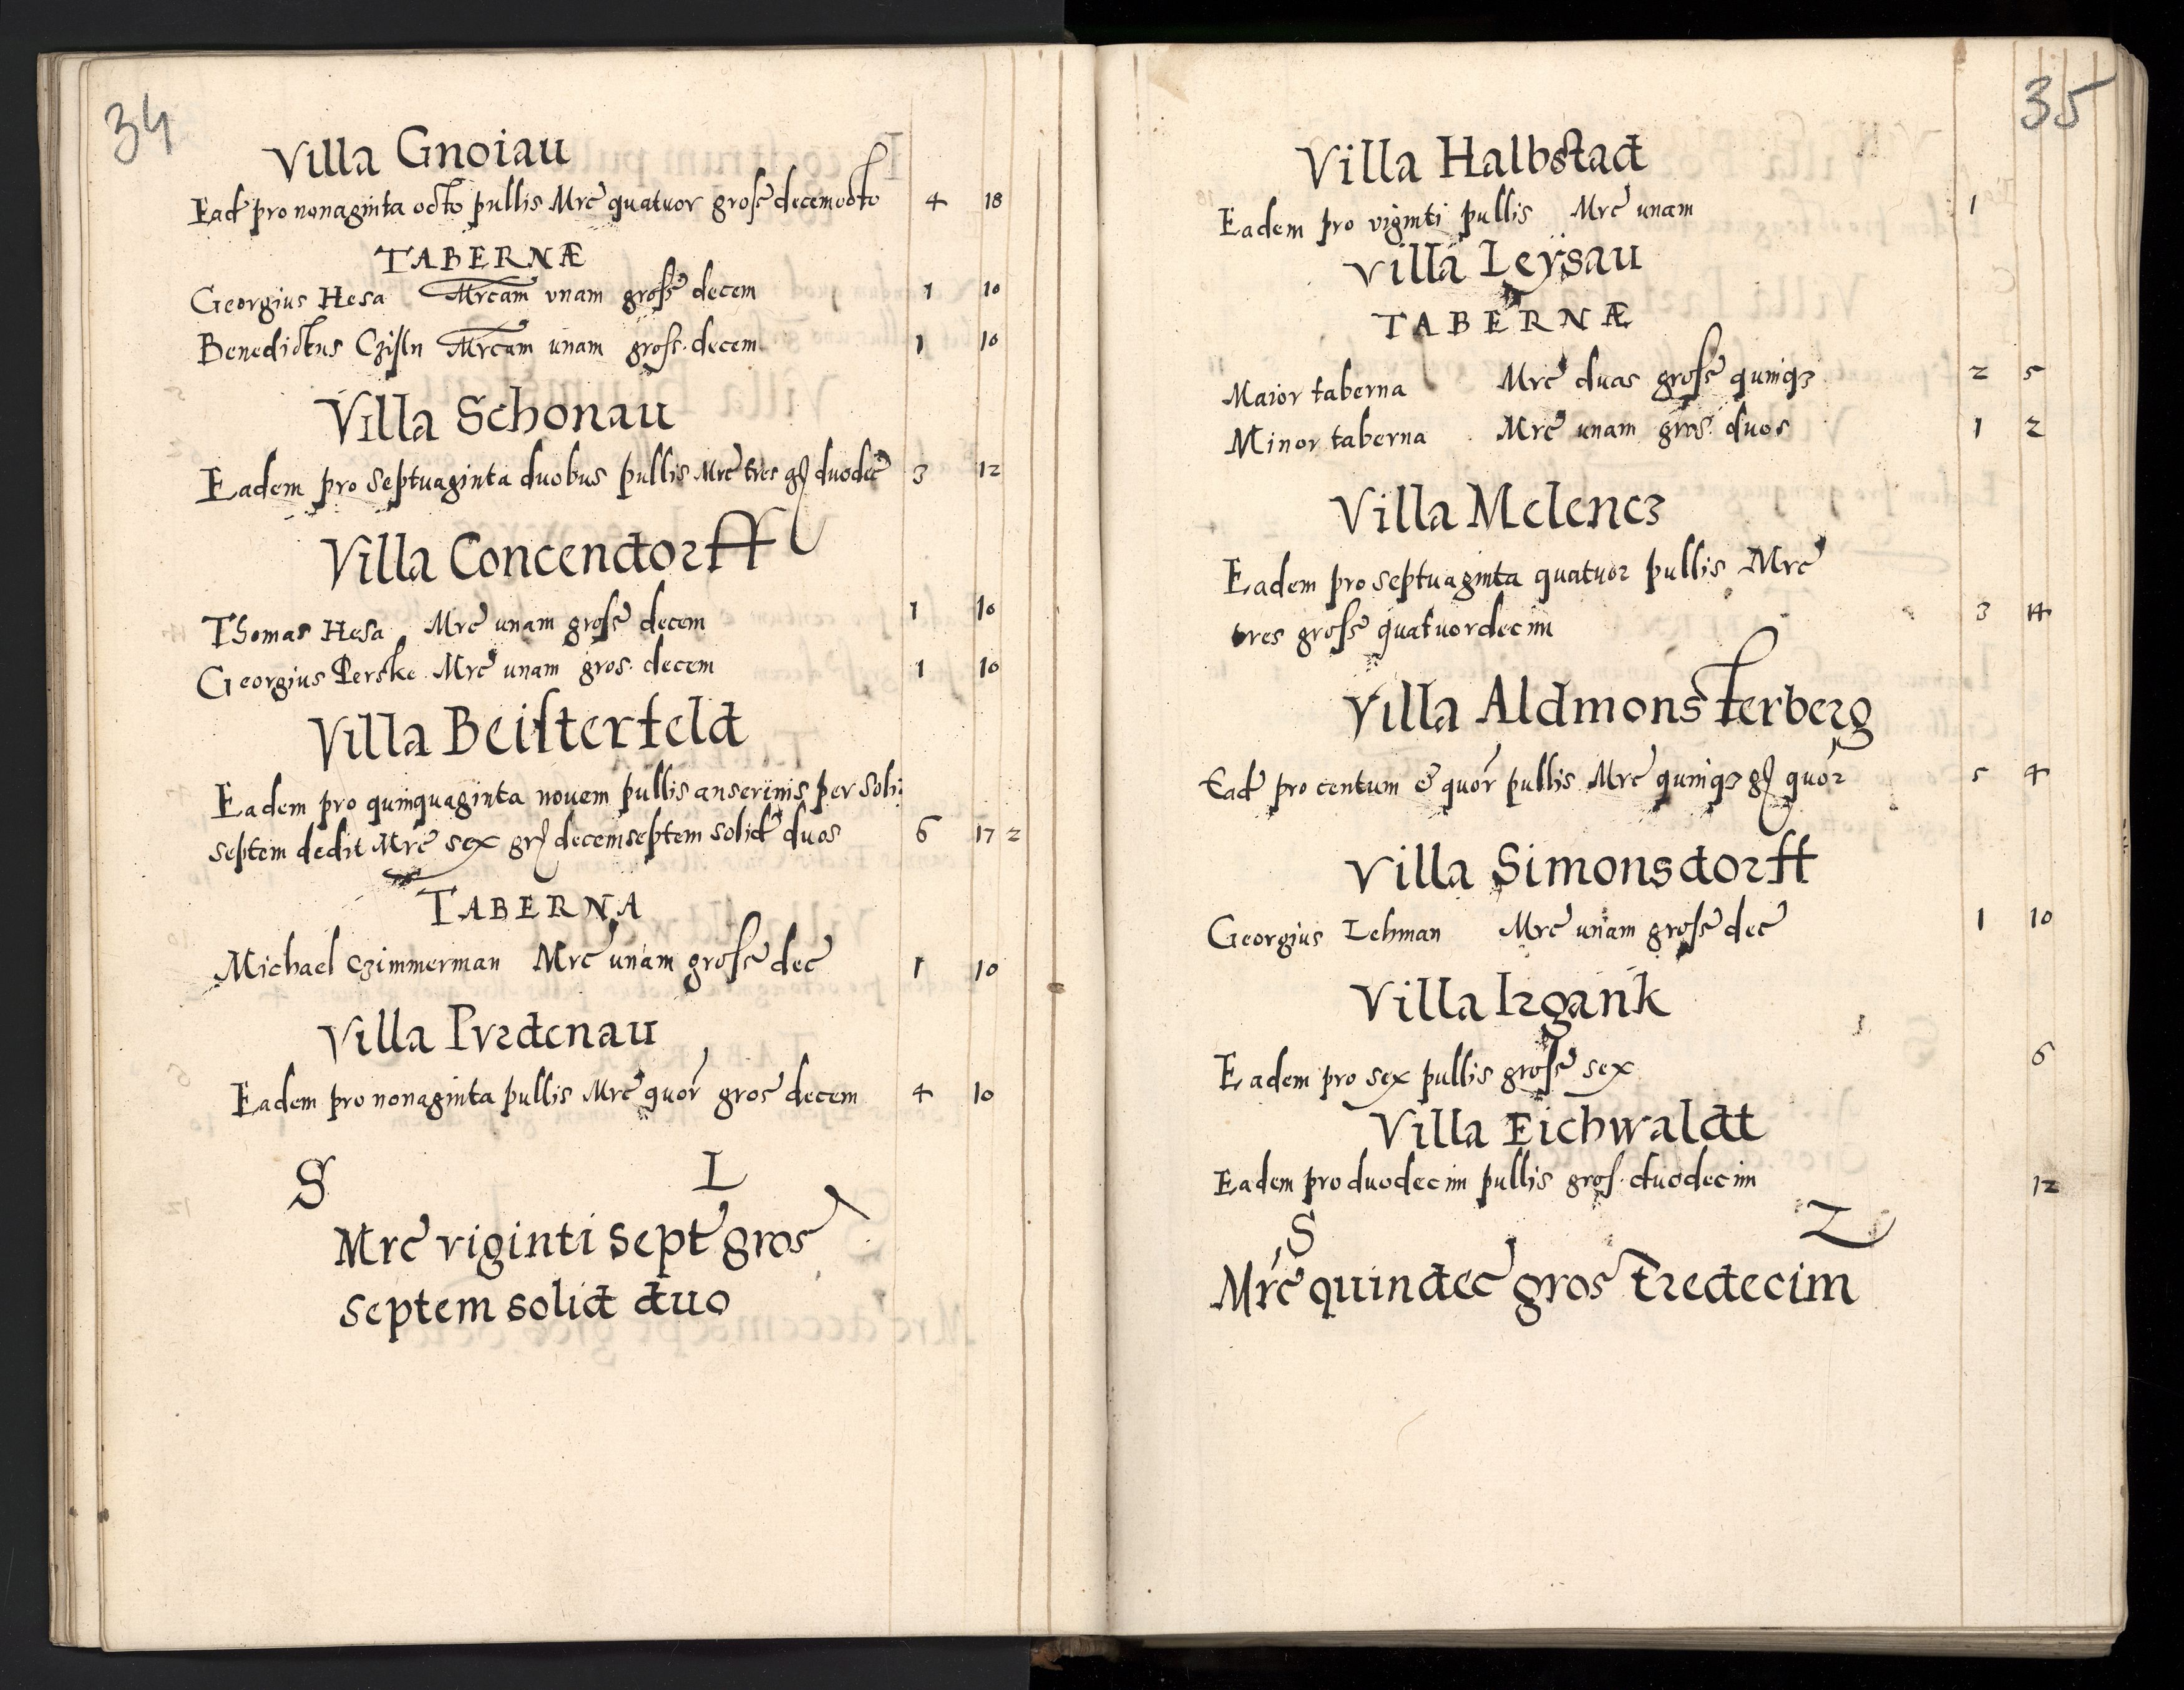 34
Villa Gnoiau
Ead pro nonaginta octo pullis Mrc quatuor gross decemocto 4 18
TABERNÆ
Georgius Hesa Mrcam vnam gross decem 1 10
Benedictus Czisln Mrcam unam gross. decem 1 10
Villa Schonau
Eadem pro septuaginta duobus pullis Mrc tres gß duodec 3 12
Villa Concendorff
Thomas Hesa Mrc unam gross decem 1 10
Georgius Perske Mrc unam gros. decem 1 10
Villa Beisterfeld
Eadem pro quinquaginta novem pullis anserinis per Soli:
septem dedit Mrc sex gr decemseptem solid duos 6 17 2
TABERNA
Michael Czimmerman Mrc unam gross dec 1 10
Villa Pvrdenau
Eadem pro nonaginta pullis Mrc quor gros decem 4 10
S L
Mrc viginti sept gros
septem solid duo
35
Villa Halbstad
Eadem pro viginti pullis Mrc unam 1
Villa Leÿsau
TABERNÆ
Maior taberna Mrc duas gross quinqз 2 5
Minor taberna Mrc unam gros. duos 1 2
Villa Melencz
Eadem pro septuaginta quatuor pullis Mrc
tres gross quatuordecim 3 14
Villa Aldmonsterberg
Ead pro centum & quor pullis Mrc quinqз gß quor 5 4
Villa Simonsdorff
Georgius Lehman Mrc unam gross dec 1 10
Villa Irgank
Eadem pro sex pullis gross sex 6
Villa Eichwaldt
Eadem pro duodecim pullis gros. duodecim 12
S L
Mrc quindec gros tredecim